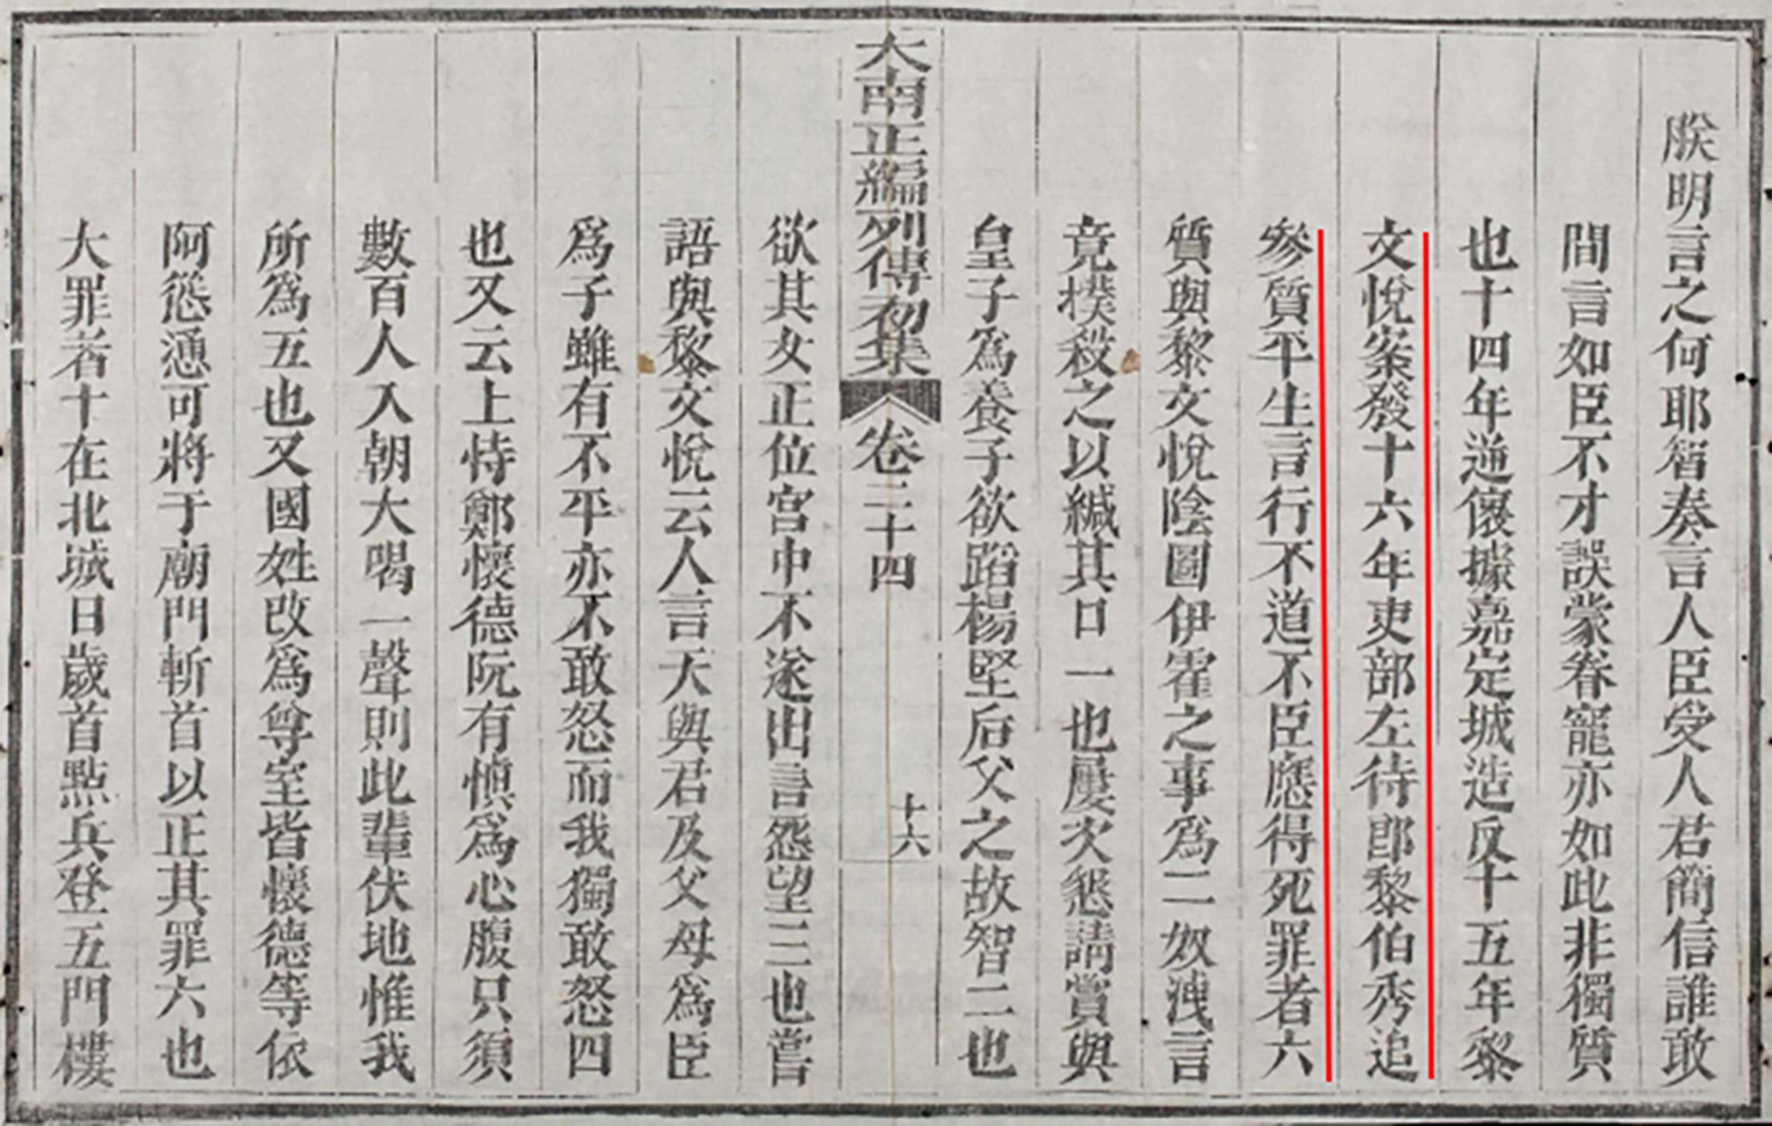 朕明言之何耶智奏言人臣受人君簡信誰敢
間言如臣不才誤蒙眷寵亦如此非獨質
也十四年逆儴據嘉定城造反十五年黎
文悅案發十六年吏部左侍郎黎伯秀追
參質平生言行不道不臣應得死罪者六
質與黎文悅陰圖伊霍之事爲二奴洩言
竟撲殺之以緘其口一也屢次懇請賞與
皇子爲養子欲蹈楊堅后父之故智二也
大南正編列傳初集
卷二十四
十六
欲其女正位宮中不遂出言怨望三也嘗
語與黎文悅云人言天與君及父母爲臣
爲子雖有不平亦不敢怒而我獨敢怒四
也又云上恃鄭懷德阮有慎爲心腹只須
數百人入朝大喝一聲則此輩伏地惟我
所爲五也又國姓改爲尊室皆懷德等依
阿慫慂可將于廟門斬首以正其罪六也
大罪者十在北城日歲首點兵登五門樓